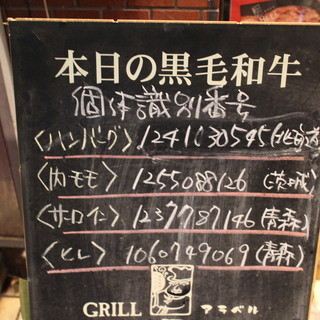 本日の黒毛和牛
個体識別番号
〈ハンバーグ〉1241030545(北海道)
〈内モモ〉1255088126 (茨城)
〈サーロイン〉1237787146(青森)
〈ヒレ〉1060749069(青森)
GRILL アラベル